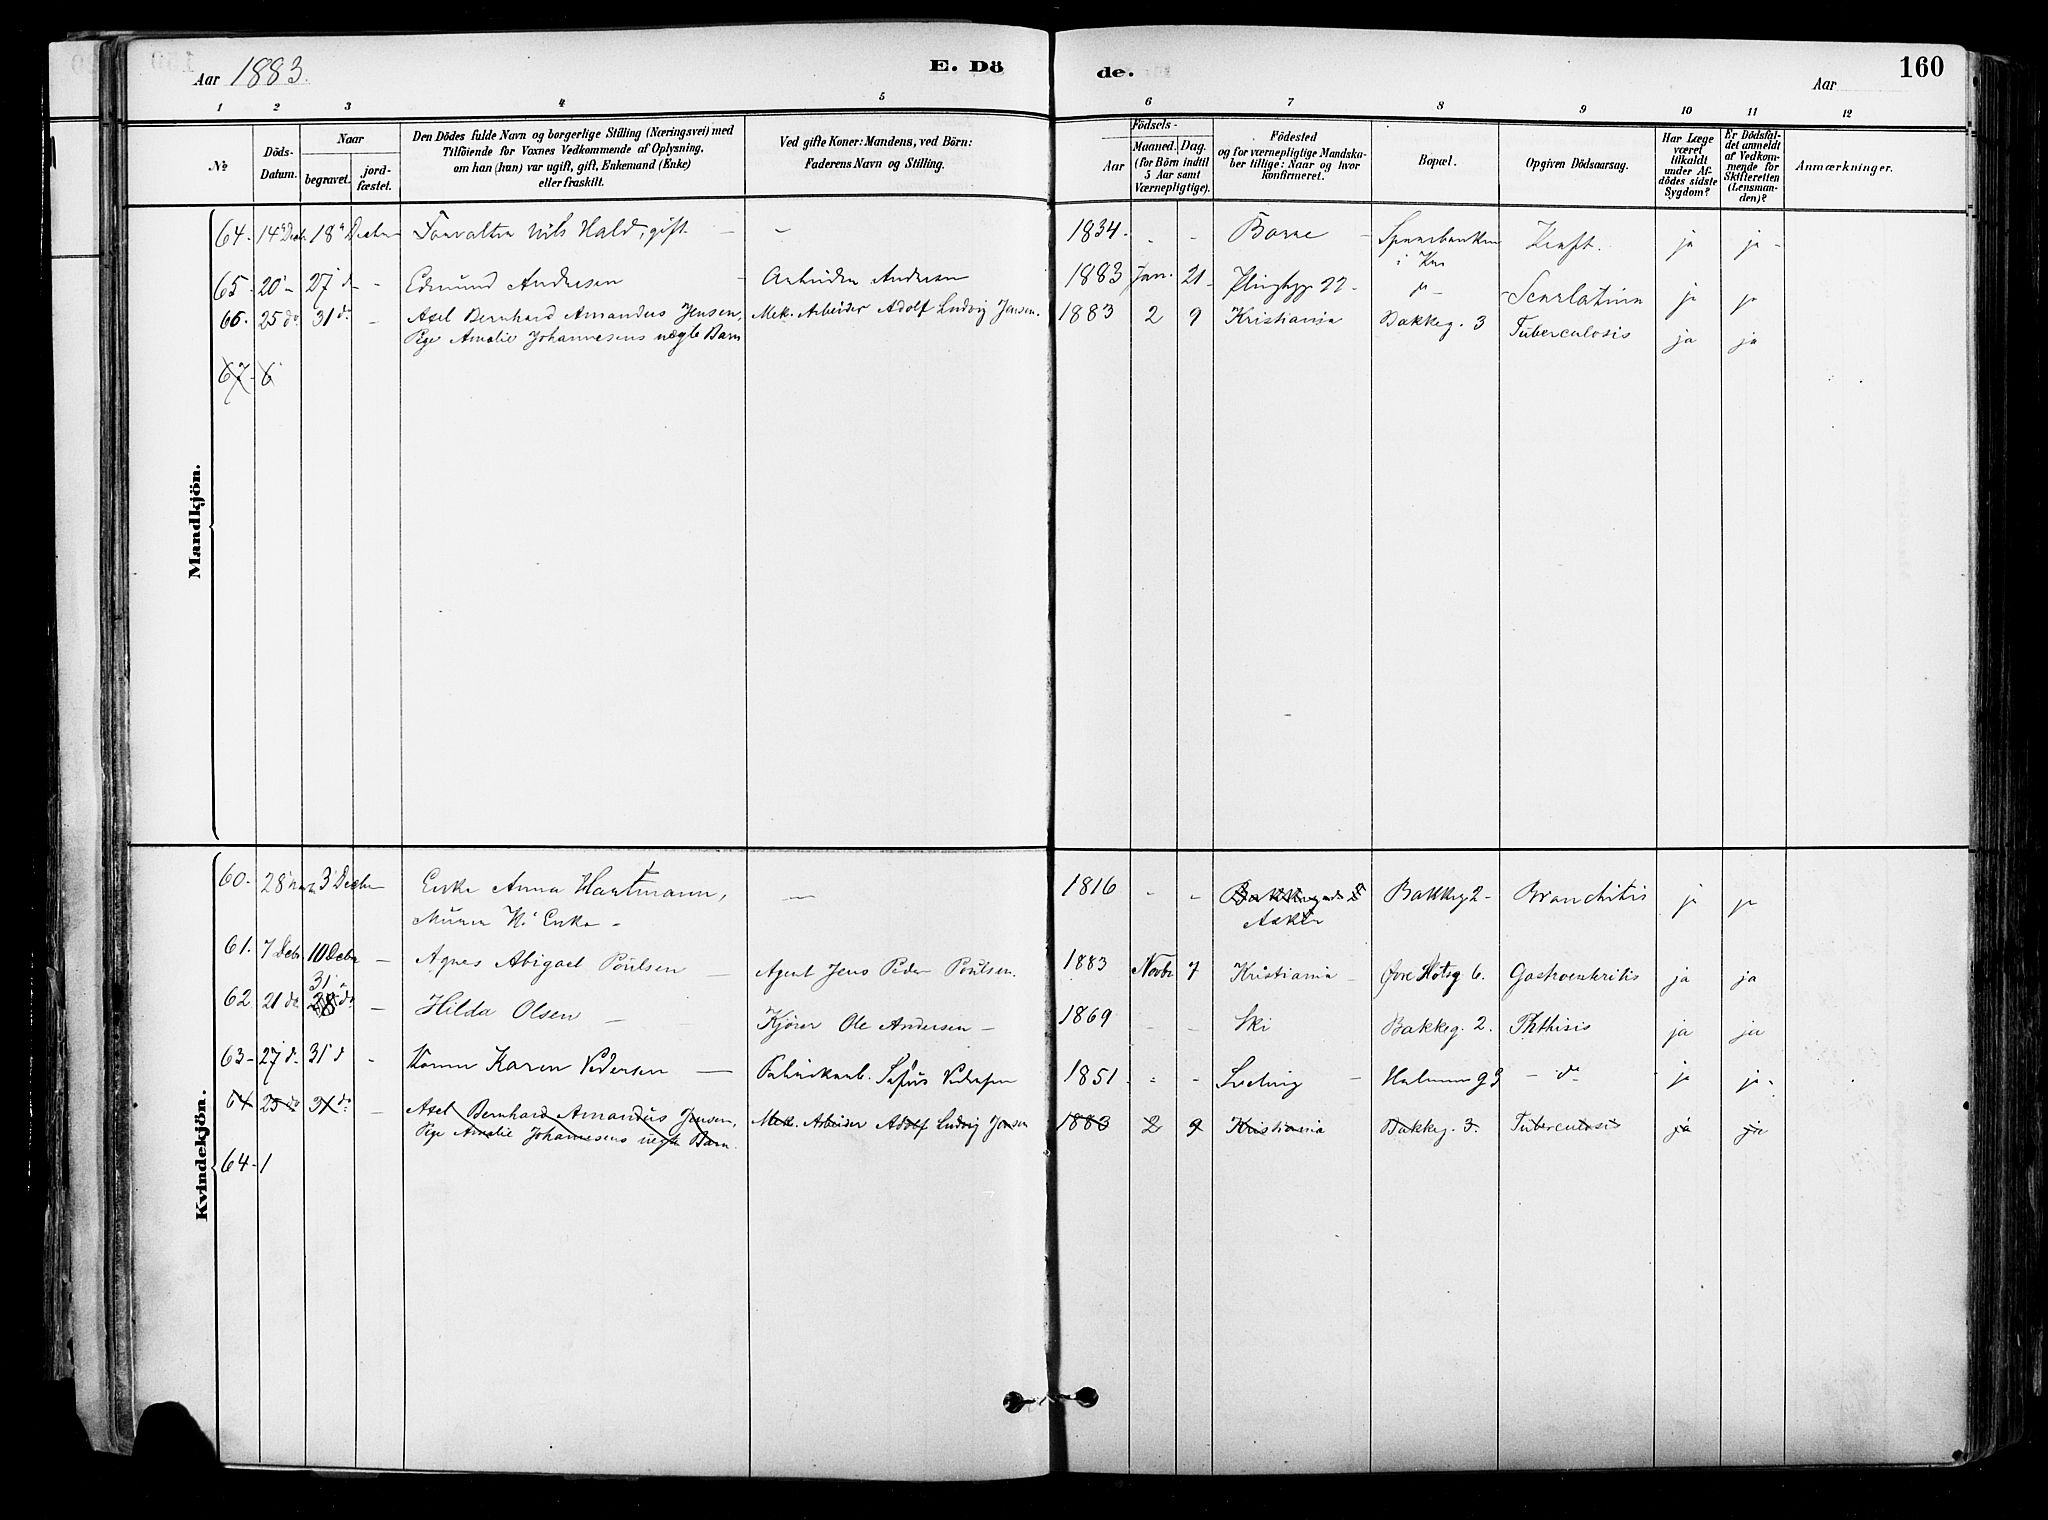 Aar 1883.
E. Dö
de.
Aar
160
1 2 3 4 5 6 7 8 9 10 11 12
No
Döds-
Datum.
Naar
begravet.
jord-
fæstet.
Den Dödes fulde Navn og borgerlige Stilling (Næringsvei) med
Tilföiende for Voxnes Vedkommende af Oplysning,
om han (hun) var ugift, gift, Enkemand (Enke)
eller fraskilt.
Ved gifte Koner: Mandens, ved Börn:
Faderens Navn og Stilling.
Födsels-
Aar
Maaned.
Dag.
(for Börn indtil
5 Aar samt
Værnepligtige).
Födested
og for værnepligtige Mandska-
ber tillige: Naar og hvor
konfirmeret.
Bopæl.
Opgiven Dödsaarsag.
Har Læge
været
tilkaldt
under Af-
dödes sidste
Sygdom?
Er Dödsfal-
det anmeldt
af Vedkom-
mende for
Skifteretten
(Lensman-
den)?
Anmærkninger.
Mandkjön.
64. 14 Decbr 18 Decbr Nils Hald, gift - - 1834. - - Sparebanken Kræft. ja ja -
65. 20 - 27 d - Edmund Andresen - Arbeider Andresen 1883 Jan. 21 - 22 - Scarlatina ja ja
66. 25 do 31 do - Axel Bernhard Amandus Jensen, Mek. Arbeider Adolf Ludvig Jensen. 1883 2 9 Kristiania Bakkeg. 3 Tuberculosis ja ja
Pige Amalie Johannesens uægte Barn
67 - 6
Kvindekjön.
60. 28 3 Decbr Enke Anna Hartmann, - 1816 - - Bakkeg 2 - Bronchitis ja ja
Murer H. Enke - Asker
61. 7 Decbr. 10 Decbr - Agnes Abigael Poulsen - Agent Jens Peder Poulsen. 1883 Novbr 7 Kristiania - Øvre Slotsg 6. Gastroenteritis ja ja
31
62 21 do 28 do - Hilda Olsen - Kjører Ole Andersen - 1869 - - Ski Bakkeg. 2. Phthisis ja ja
63 - 27 d - 31 d - Kone Karen Pedersen - Fabrikarb. Sofus Pedersen 1851. - - - do ja ja -
64 25 do 31 do - Axel Bernhard Amandus Jensen, Mek. Arbeider Adolf Ludvig Jensen 1883 2 9 Kristiania Bakkeg. 3. Tuberculosis ja ja
Pige Amalie Johannesens uægte Barn.
64 - 1